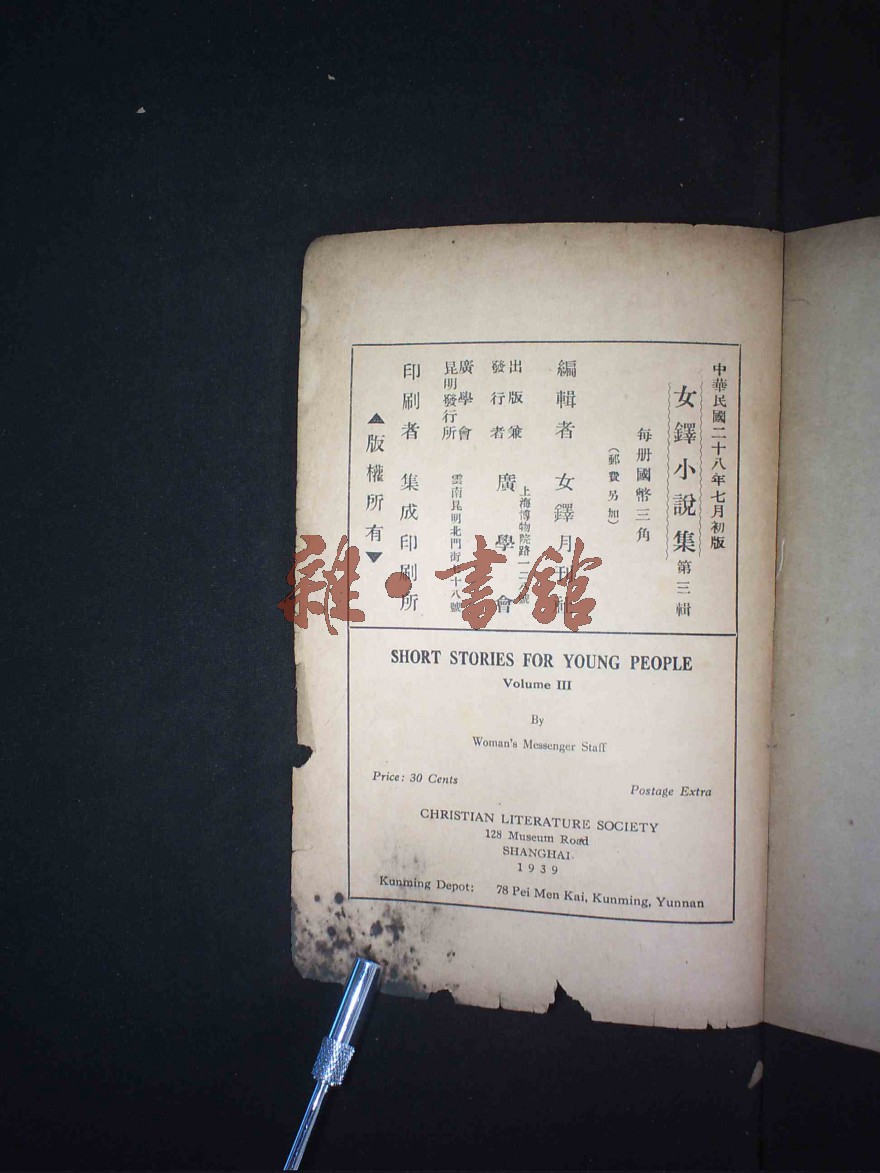 中華民國二十八年七月初版
女鐸小說集 第三輯
每册國幣三角
（郵費另加）
編輯者 女鐸月刊社
出版兼發行者 廣學會
上海博物院路一二八號
廣學會昆明發行所
雲南昆明北門街七十八號
印刷者 集成印刷所
▲版權所有▼
雜·書館
SHORT STORIES FOR YOUNG PEOPLE
Volume III
By
Woman's Messenger Staff
Price: 30 Cents
Postage Extra
CHRISTIAN LITERATURE SOCIETY
128 Museum Road
SHANGHAI
1939
Kunming Depot: 78 Pei Men Kai, Kunming, Yunnan